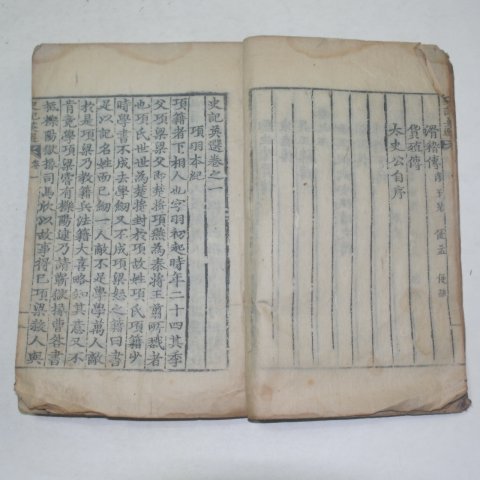 滑稽傳
貨殖傳
太史公自序
史記英選卷之一
項羽本紀
項籍者下相人也字羽初起時年二十四其季
父項梁梁父卽楚將項燕爲秦將王翦所戮者
也項氏世世爲楚將封於項故姓項氏項籍少
時學書不成去學劒又不成項梁怒之籍曰書
足以記名姓而已劒一人敵不足學學萬人敵
於是項梁乃敎籍兵法籍大喜略知其意又不
肯竟學項梁嘗有櫟陽逮乃請蘄獄掾曹咎書
抵櫟陽獄掾司馬欣以故事得已項梁殺人與